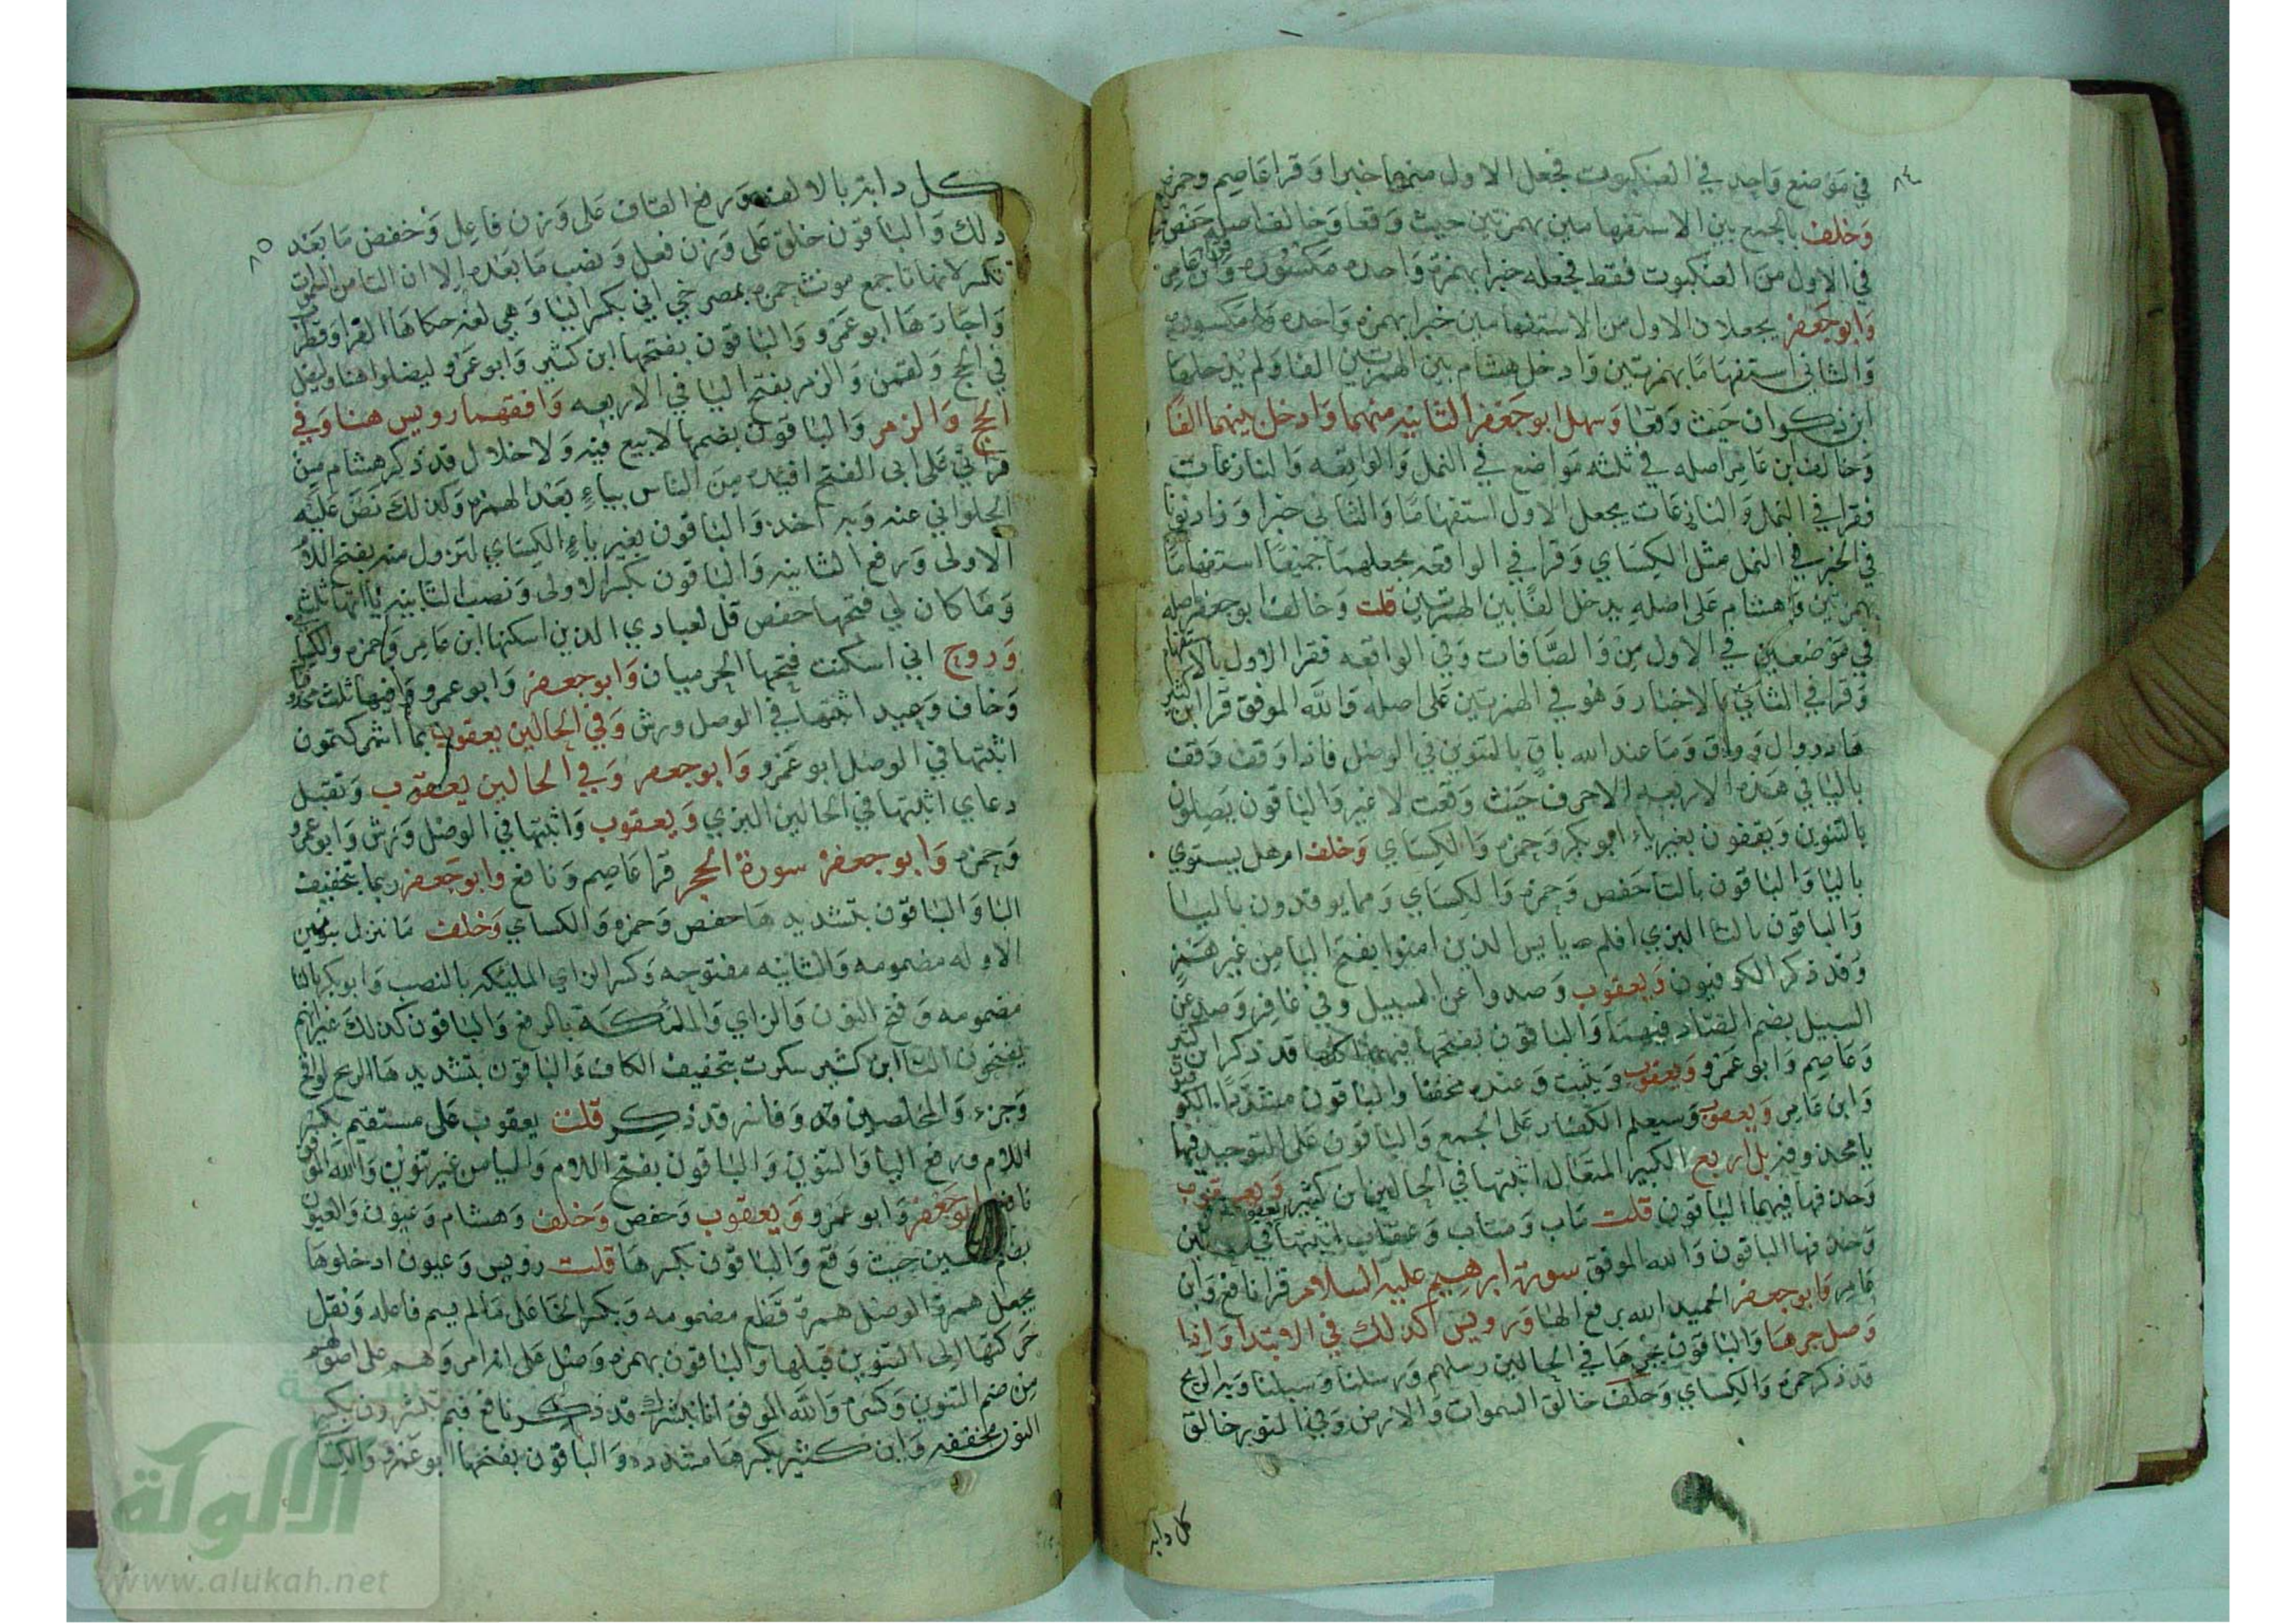 ٨٤
في موضع واحد في العنكبوت فجعل الاول منهما خبرا وقرا عاصم وحمزه
وخلف بالجمع بين الاستفهامين بهمزتين حيث وقعا وخالف اصله حفص
في الاول من العنكبوت فقط فجعله خبرا بهمزة واحده مكسوره وابن عامر
وابو جعفر يجعلان الاول من الاستفهامين خبرا بهمزه واحده مكسوره
والثاني استفهاما بهمزتين وادخل هشام بين الهمزتين الفا ولم يدخلها
ابن ذكوان حيث وقعا وسهل ابو جعفر الثانيه منهما وادخل بينهما الفا
وخالف ابن عامر اصله في ثلثه مواضع في النمل والواقعه والنازعات
فقرا في النمل والنازعات يجعل الاول استفهاما والثاني خبرا وزاد نونا
في الخبر في النمل مثل الكساي وقرا في الواقعه يجعلهما جميعا استفهاما
بهمزتين وهشام على اصله يدخل الفا بين الهمزتين قلت وخالف ابو جعفر اصله
في موضعين في الاول من والصافات وفي الواقعه فقرا الاول بالاستفهام
وقرا في الثاني بالاخبار وهو في الهمزتين على اصله والله الموفق قرا ابن كثير
هاد ووال وواق وما عند الله باق بالتنوين في الوصل فاذا وقف وقف
باليا في هذه الاربعه الاحرف حيث وقعت لا غير والباقون يصلون
بالتنوين ويقفون بغير ياء ابو بكر وحمزه والكساي وخلف ام هل يستوي
باليا والباقون بالتا حفص وحمزه والكساي ومما يوقدون باليا
والباقون بالتا البزي افلم يايس الذين امنوا بفتح اليا من غير همز
وقد ذكر الكوفيون ويعقوب وصدوا عن السبيل وفي غافر وصد عن
السبيل بضم الصاد فيهما والباقون بفتحها فيهما اكلها قد ذكر ابن كثير
وعاصم وابو عمرو ويعقوب ويثبت وعنده مخففا والباقون مشددا الكوفيون
وابن عامر ويعقوب وسيعلم الكفار على الجمع والباقون على التوحيد فيها
يا محذوفه بل اربع الكبير المتعال اثبتها في الحالين ابن كثير ويعقوب
وحذفها فيهما الباقون قلت ماب ومتاب وعقاب اثبتها في
وحذفها الباقون والله الموفق سورة ابرهيم عليه السلام قرا نافع وابن
عامر وابو جعفر الحميد الله برفع الها ورويس كذلك في الابتدا واذا
وصل جر ها والباقون بجرها في الحالين رسلهم ورسلنا وسبلنا وبه الريح
قد ذكر حمزه والكساي وخلف خالق السموات والارض وفي النور خالق
كل دابه
٨٥
كل دابة بالالف ورفع القاف على وزن فاعل وخفض ما بعد
ذلك والباقون خلق على وزن فعل ونصب ما بعده الا ان التا من السموات
تكسر لانها تا جمع مونث حمزه بمصرخي اني بكسر اليا وهي لغه حكاها الفرا وقطرب
واجازها ابو عمرو والباقون بفتحها ابن كثير وابو عمرو ليضلوا هنا وليضل
في الحج ولقمن والزمر بفتح اليا في الاربعه وافقهما رويس هنا وفي
الحج والزمر والباقون بضمها لا بيع فيه ولا خلال قد ذكر هشام من
قراتي على ابي الفتح افئيدة من الناس بياء بعد الهمزه وكذلك نص عليه
الحلواني عنه وبه اخذ والباقون بغير ياء الكساي لتزول منه بفتح اللام
الاولى ورفع الثانيه والباقون بكسر الاولى ونصب الثانيه ياااتها ثلث
وما كان لي فتحها حفص قل لعبادي الذين اسكنها ابن عامر وحمزه والكساي
وروح اني اسكنت فتحها الحرميان وابو جعفر وابو عمرو وفيها ثلث محذوفات
وخاف وعيد اثبتها في الوصل ورش وفي الحالين يعقوب بما اشركتمون
اثبتها في الوصل ابو عمرو وابو جعفر وفي الحالين يعقوب وتقبل
دعاي اثبتها في الحالين البزي ويعقوب واثبتها في الوصل ورش وابو عمرو
وحمزه وابو جعفر سورة الحجر قرا عاصم ونافع وابو جعفر ربما بتخفيف
البا والباقون بتشديدها حفص وحمزه والكساي وخلف ما ننزل بنونين
الاوله مضمومه والثانيه مفتوحه وكسر الزاي المليكه بالنصب وابو بكر بالتا
مضمومه وفتح النون والزاي والملئكة بالرفع والباقون كذلك غير انهم
يفتحون التا ابن كثير سكرت بتخفيف الكاف والباقون بتشديدها الريح لواقح
وجزء والمخلصين قد ذكر قلت يعقوب على مستقيم بكسر
اللام ورفع اليا والتنوين والباقون بفتح اللام واليا من غير تنوين والله الموفق
نافع وابو جعفر وابو عمرو ويعقوب وحفص وخلف وهشام وعيون والعيون
بضم العين حيث وقع والباقون بكسرها قلت رويس وعيون ادخلوها
يجعل همزة الوصل همزة قطع مضمومه وبكسر الخا على ما لم يسم فاعله ونقل
حركتها الى التنوين قبلها والباقون بهمزه وصل على انه امر وهم على اصولهم
من ضم التنوين وكسره والله الموفق انا نبشرك قد ذكر نافع فبم تبشرون بكسر
النون مخففه وابن كثير بكسرها مشدده والباقون بفتحها ابو عمرو والكساي
الألوكة
www.alukah.net